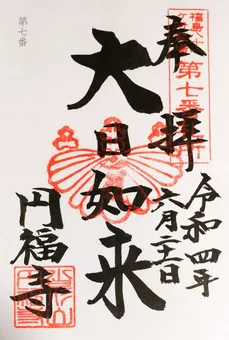 奉拝
第七番
令和四年
六月二十一日
大日如来
円福寺
第七番